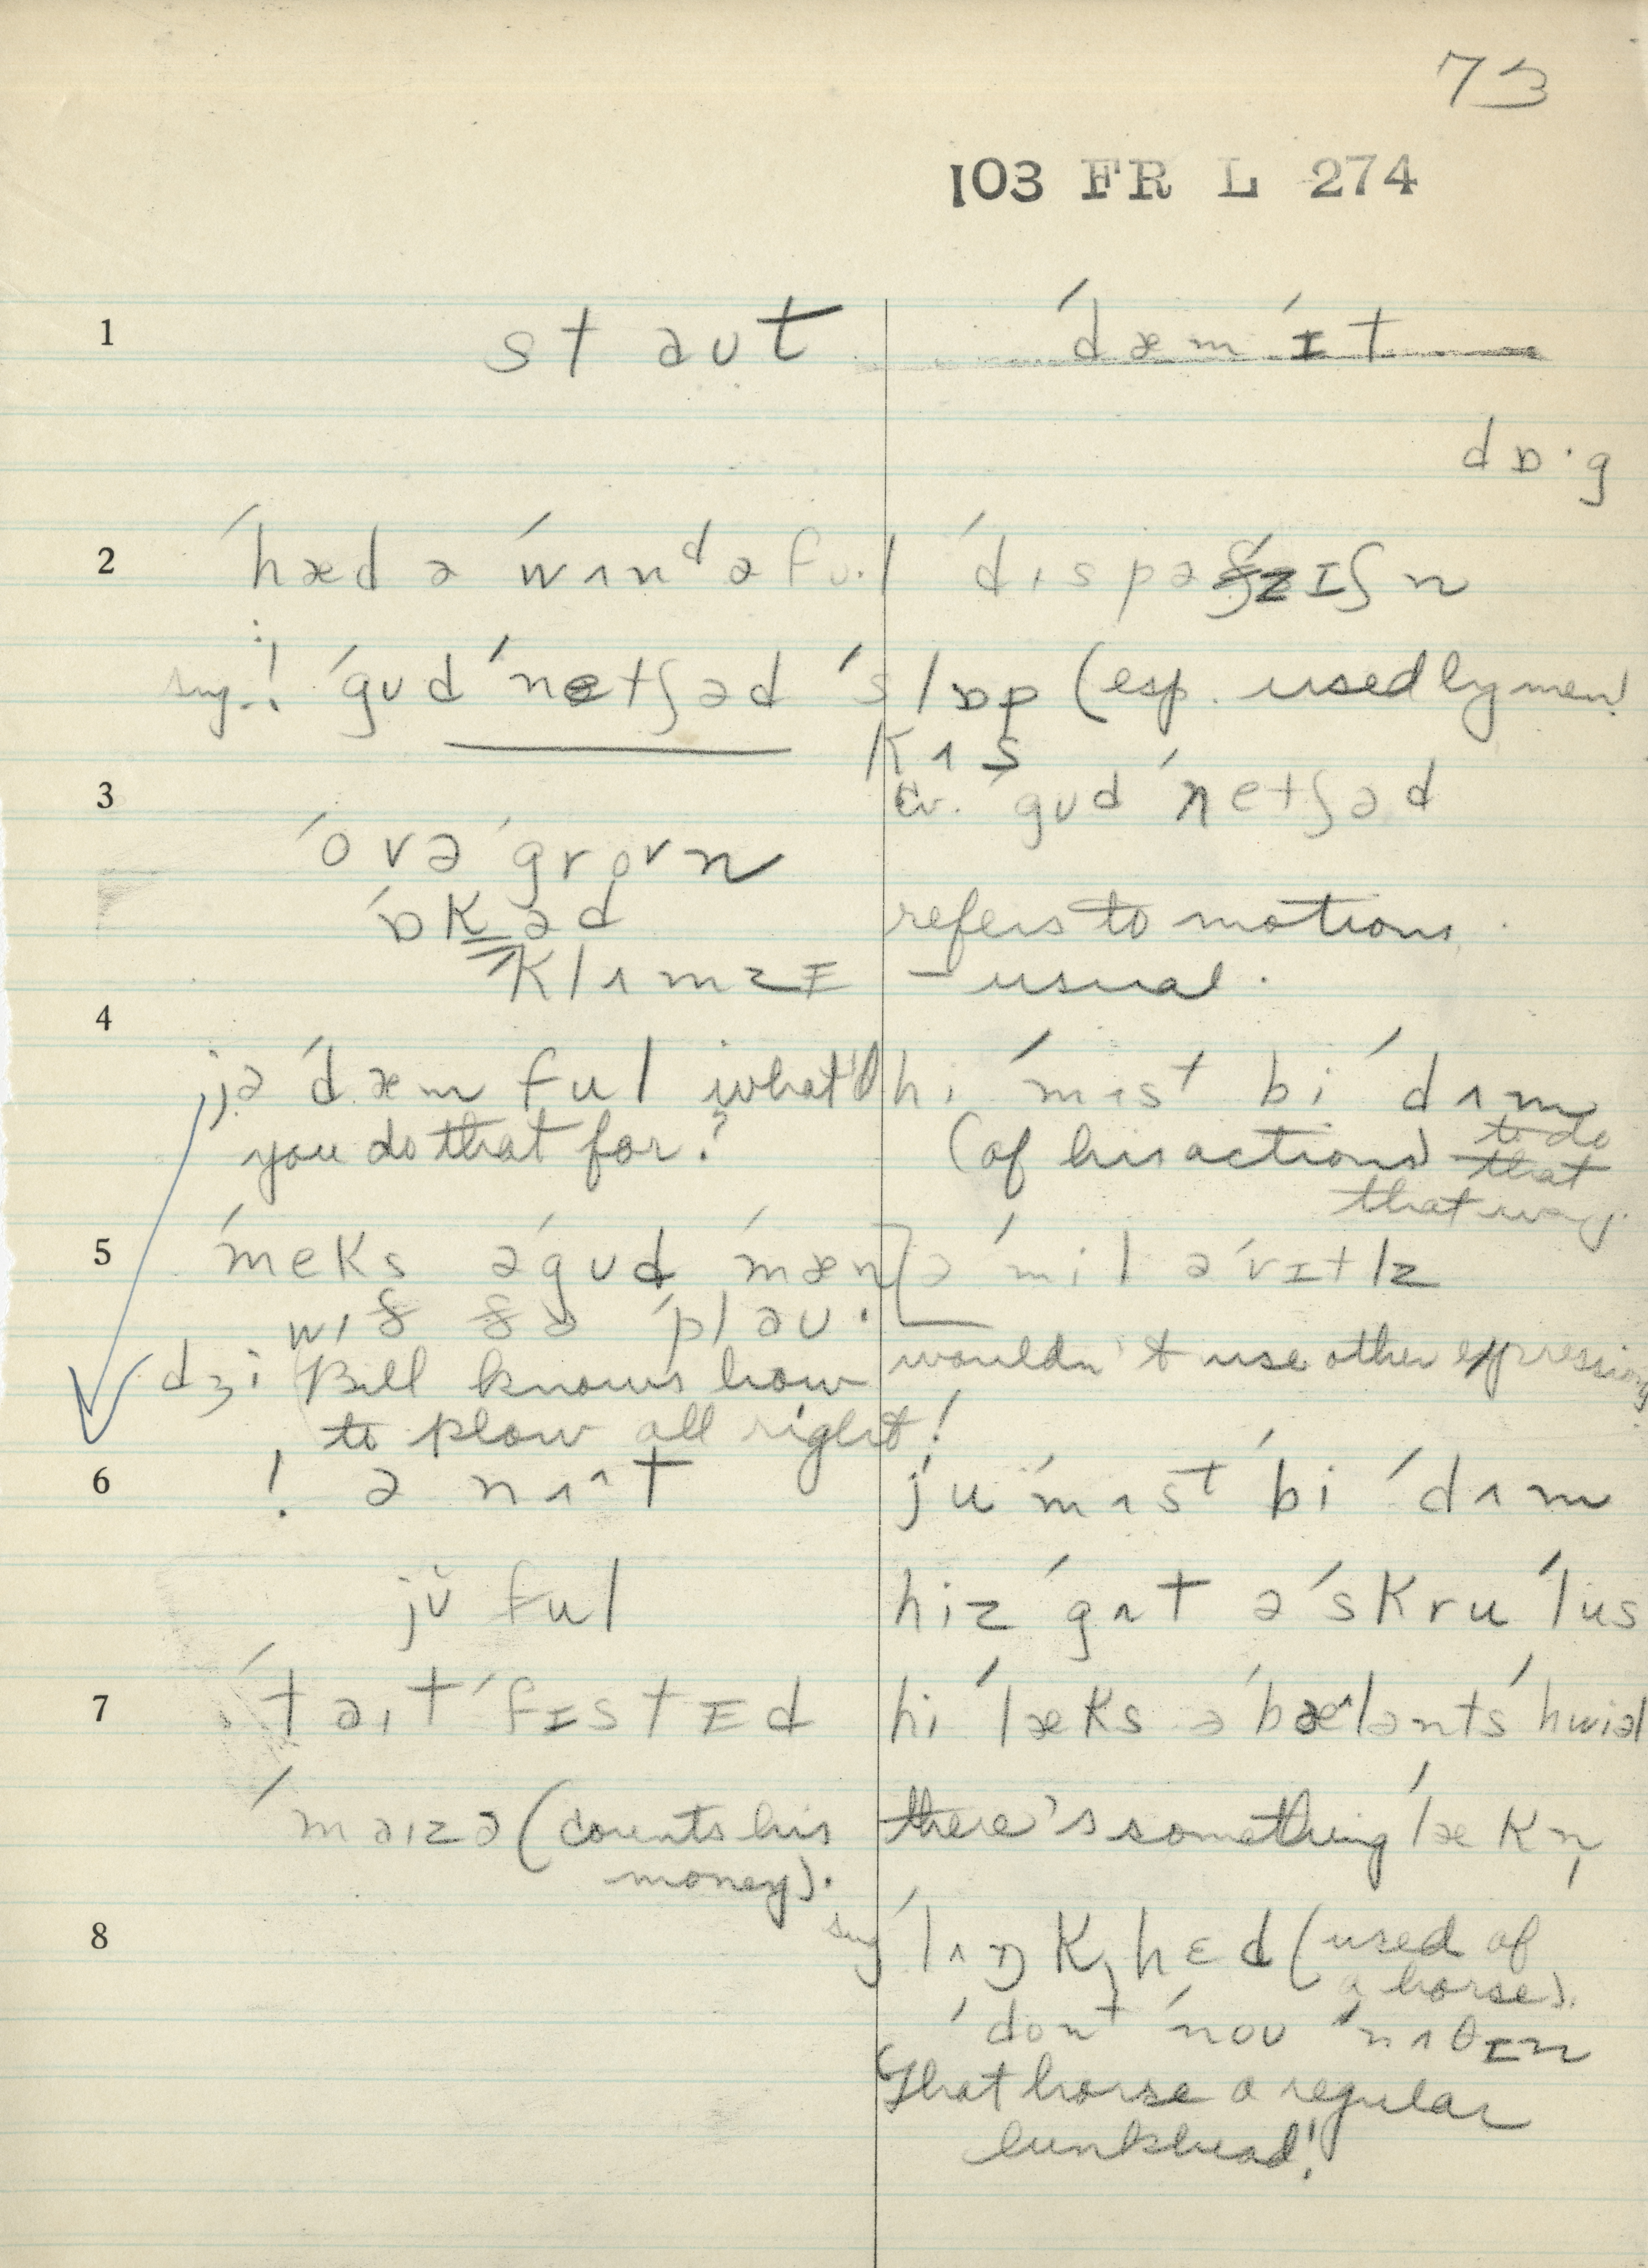 73
103 FR L 274
1
st əʊt
ˈdæm ˈɪt
dɒ·g
2
ˈhæd ə ˈwʌnᵈəfʊ·l ˈdɪspəˈzɪʃn
sug.! ˈgʊd ˈnetʃəd ˈslɒp (esp. used by men)
kʌs
cv. ˈgʊd ˈnetʃəd
3
ˈovəˈgroʊn
ˈɒkəd refers to motions.
klʌmzɪ – usual.
4
jə ˈdæm ful what'd
you do that for?
hi ˈmʌsᵗ bi ˈdʌm
(of his actions) to do
that
that way.
5
ˈmeks əˈgʊd ˈmæn
wɪð ðə ˈpləʊ.
[ə ˈmɪl əˈrɪtlz
dʒi (Bill knows how
to plow all right!
wouldn't use other expressions
6
! ə nʌ^t
ju ˈmʌsᵗ bi ˈdʌm
jʊ ful
hiz ˈgɒt əˈskru ˈlus
7
ˈtəɪtˈfɪstɪd
hi ˈlæks əˈbæ^lənts ˈhwiəl
ˈməɪzə (counts his
money).
there's something ˈlækn̩
8
sug ˈlʌŋkˌhɛd (used of
a horse).
ˈdonᵗ ˈnoʊ ˈnʌθɪn
That horse a regular
lunkhead!